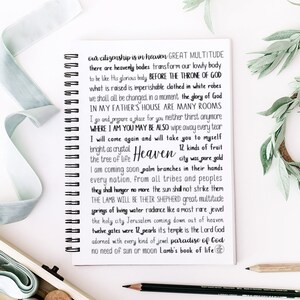 our citizenship is in heaven GREAT MULTITUDE
there are heavenly bodies transform our lowly body
to be like His glorious body BEFORE THE THRONE OF GOD
what is raised is imperishable clothed in white robes
we shall all be changed in a moment the glory of God
IN MY FATHER'S HOUSE ARE MANY ROOMS
I go and prepare a place for you neither thirst anymore
WHERE I AM YOU MAY BE ALSO wipe away every tear
I will come again and will take you to myself
bright as crystal 12 kinds of fruit
the tree of life Heaven city was pure gold
I am coming soon palm branches in their hands
every nation, from all tribes and peoples
they shall hunger no more the sun shall not strike them
THE LAMB WILL BE THEIR SHEPHERD great multitude
springs of living water radiance like a most rare jewel
the holy city Jerusalem coming down out of heaven
twelve gates were 12 pearls its temple is the Lord God
adorned with every kind of jewel paradise of God
no need of sun or moon Lamb's book of life